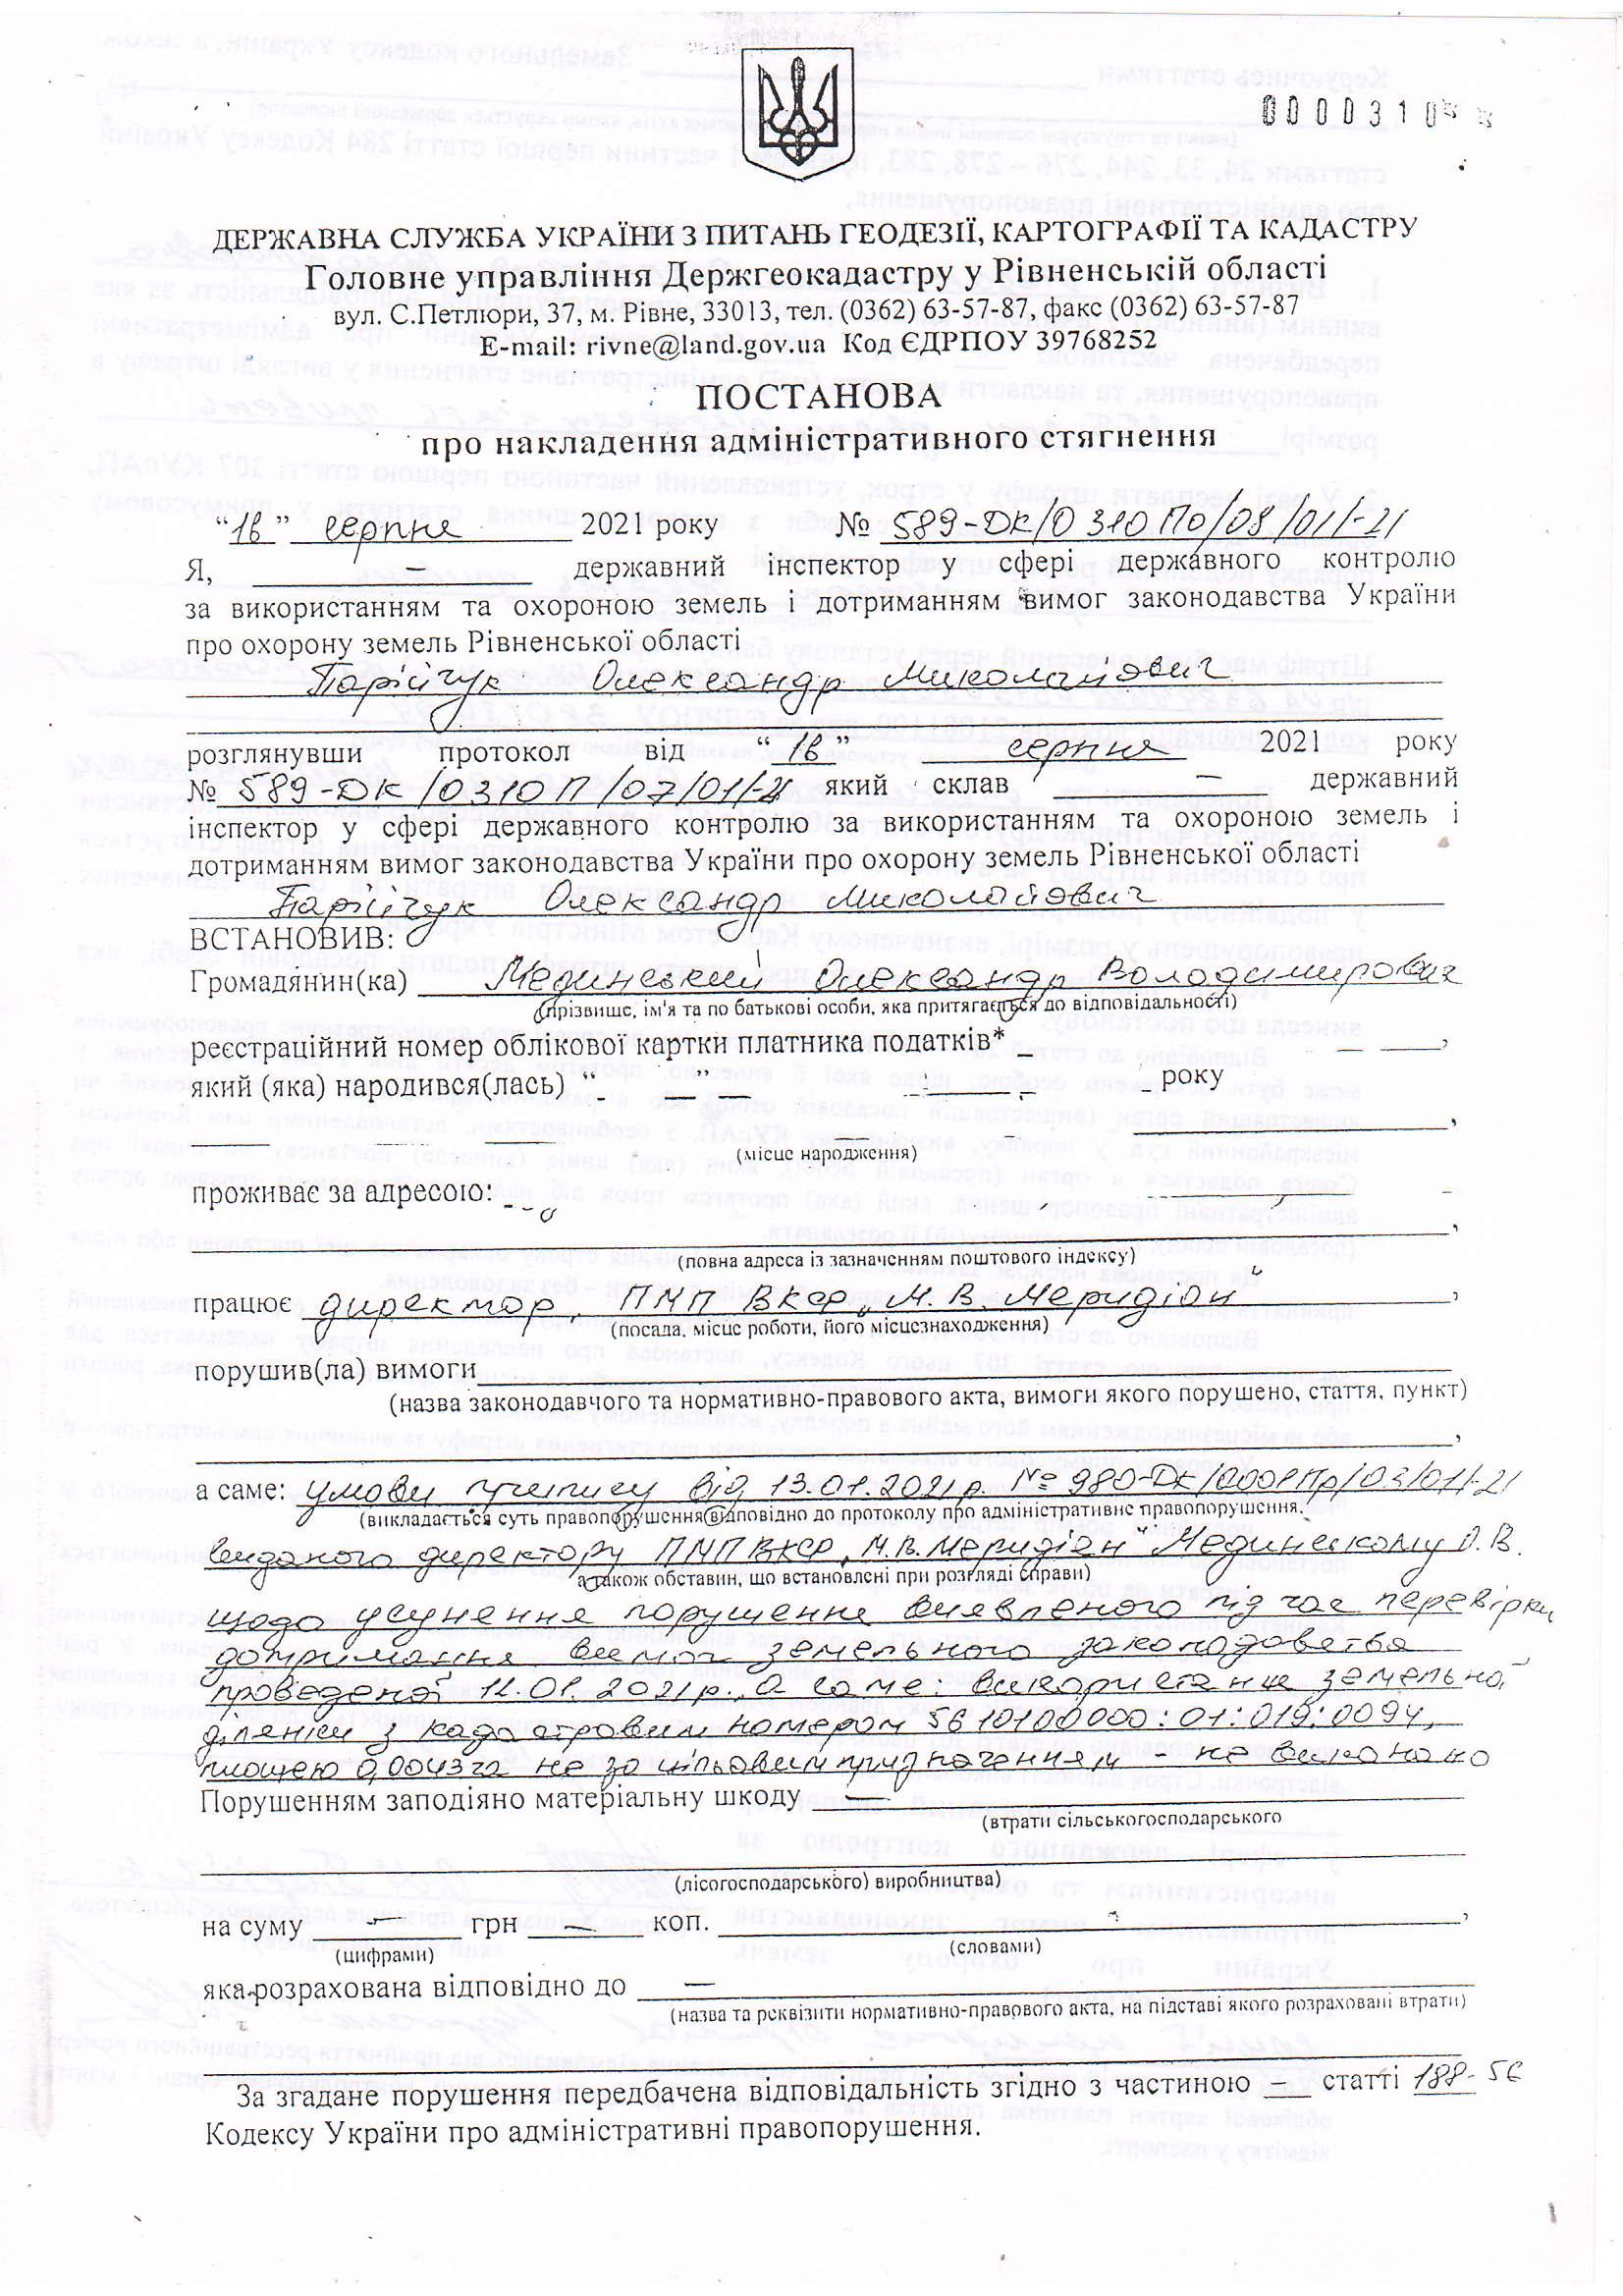 0000310
ДЕРЖАВНА СЛУЖБА УКРАЇНИ З ПИТАНЬ ГЕОДЕЗІЇ, КАРТОГРАФІЇ ТА КАДАСТРУ
Головне управління Держгеокадастру у Рівненській області
вул. С.Петлюри, 37, м. Рівне, 33013, тел. (0362) 63-57-87, факс (0362) 63-57-87
E-mail: rivne@land.gov.ua Код ЄДРПОУ 39768252
ПОСТАНОВА
про накладення адміністративного стягнення
“18” серпня 2021 року № 589-ДК/0310По/08/01/-21
Я, — державний інспектор у сфері державного контролю
за використанням та охороною земель і дотриманням вимог законодавства України
про охорону земель Рівненської області
Парійчук Олександр Миколайович
розглянувши протокол від “18” серпня 2021 року
№ 589-ДК/0310П/07/01/-21 який склав — державний
інспектор у сфері державного контролю за використанням та охороною земель і
дотриманням вимог законодавства України про охорону земель Рівненської області
Парійчук Олександр Миколайович
ВСТАНОВИВ:
Громадянин(ка) Мединський Олександр Володимирович
(прізвище, ім'я та по батькові особи, яка притягається до відповідальності)
реєстраційний номер облікової картки платника податків* ,
який (яка) народився(лась) “ ” року
,
(місце народження)
проживає за адресою:
,
(повна адреса із зазначенням поштового індексу)
працює директор, ПМП ВКФ „М.В. Меридіан" ,
(посада, місце роботи, його місцезнаходження)
порушив(ла) вимоги
(назва законодавчого та нормативно-правового акта, вимоги якого порушено, стаття, пункт)
,
а саме: умови припису від 13.01.2021р. № 980-ДК/0008Пр/03/01/-21
(викладається суть правопорушення відповідно до протоколу про адміністративне правопорушення,
виданого директору ПМП ВКФ „М.В.Меридіан" Мединському О.В.
а також обставин, що встановлені при розгляді справи)
щодо усунення порушення виявленого під час перевірки
дотримання вимог земельного законодавства
проведеної 12.01.2021р., а саме: використання земельної
ділянки з кадастровим номером 5610100000:01:019:0094,
площею 0,0043 га не за цільовим призначенням - не виконано
Порушенням заподіяно матеріальну шкоду —
(втрати сільськогосподарського
(лісогосподарського) виробництва)
на суму — грн — коп. ,
(цифрами) (словами)
яка розрахована відповідно до —
(назва та реквізити нормативно-правового акта, на підставі якого розраховані втрати)
За згадане порушення передбачена відповідальність згідно з частиною статті 188-56
Кодексу України про адміністративні правопорушення.